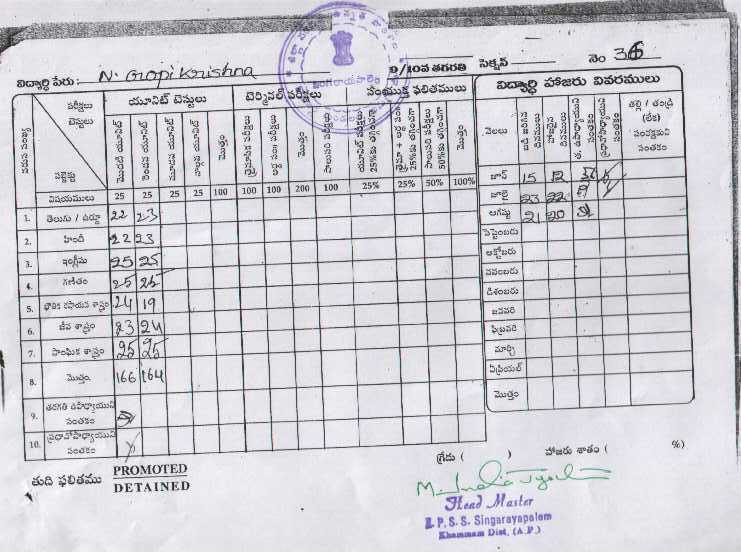 విద్యార్థి పేరు: N. Gopi Krishna 9/10వ తరగతి సెక్షన్ నెం 36
పరీక్షలు
టెస్టులు
సబ్జెక్టు
యూనిట్ టెస్టులు
టెర్మినల్ పరీక్షలు
సంయుక్త ఫలితములు
మొదటి యూనిట్
రెండవ యూనిట్
మూడవ యూనిట్
నాల్గవ యూనిట్
మొత్తం
విషయములు 25 25 25 25 100 100 100 200 100 25% 25% 50% 100%
1. తెలుగు / ఉర్దూ 22 23
2. హిందీ 22 23
3. ఇంగ్లీషు 25 25
4. గణితం 25 25
5. భౌతిక రసాయన శాస్త్రం 24 19
6. జీవ శాస్త్రం 23 24
7. సాంఘిక శాస్త్రం 25 25
8. మొత్తం 166 164
9. తరగతి ఉపాధ్యాయుని సంతకం
10. ప్రధానోపాధ్యాయుని సంతకం
విద్యార్థి హాజరు వివరములు
నెలలు
తల్లి / తండ్రి
(లేక)
సంరక్షకుని
సంతకం
జూన్ 15 12
జూలై 23 22
ఆగష్టు 21 20
సెప్టెంబరు
అక్టోబరు
నవంబరు
డిశంబరు
జనవరి
ఫిబ్రవరి
మార్చి
ఏప్రియల్
మొత్తం
గ్రేడు ( ) హాజరు శాతం ( %)
తుది ఫలితము PROMOTED
DETAINED
Head Master
Z.P.S.S. Singarayapalem
Khammam Dist. (A.P.)